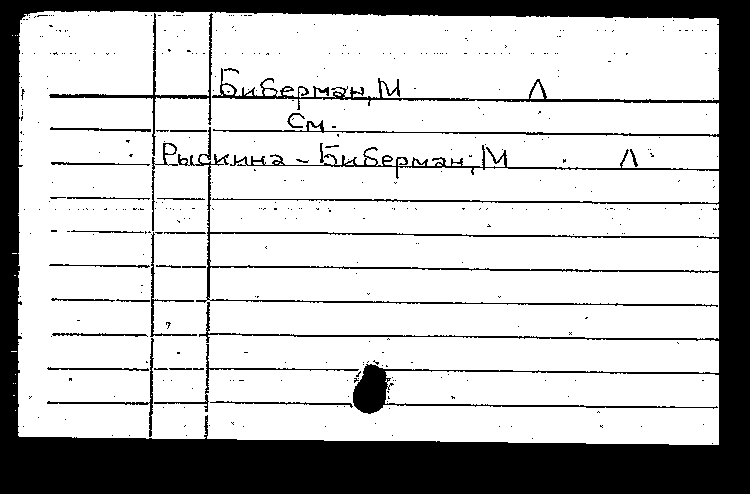 Биберман, М Л
См.
Рыскина - Биберман, М Л